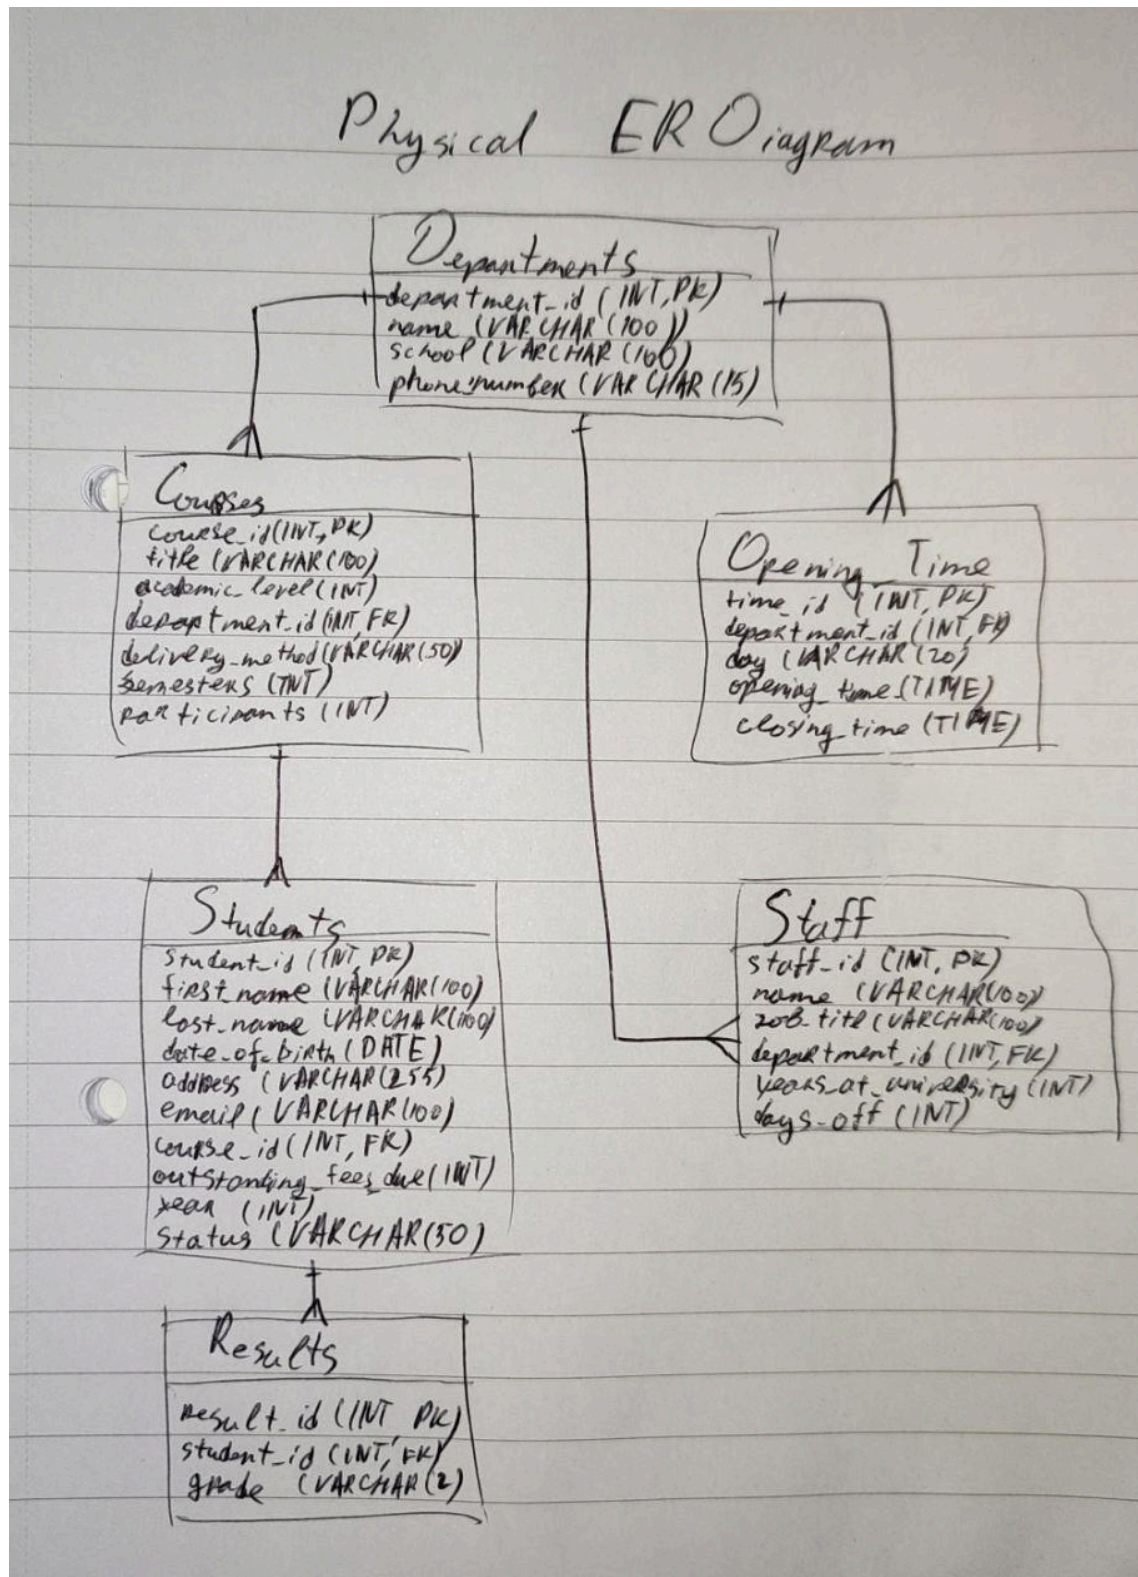 Physical ER Diagram
Departments
department_id (INT, PK)
name (VARCHAR(100))
school (VARCHAR(100)
phone_number (VARCHAR(15)
Courses
course_id(INT, PK)
title (VARCHAR(100)
academic_level(INT)
department_id(INT, FK)
delivery_method(VARCHAR(50)
semesters (INT)
participants (INT)
Opening_Time
time_id (INT, PK)
department_id (INT, FK)
day (VARCHAR(20)
opening_time (TIME)
closing_time (TIME)
Students
student_id (INT, PK)
first_name (VARCHAR(100)
last_name (VARCHAR(100)
date_of_birth (DATE)
address (VARCHAR(255)
email (VARCHAR(100)
course_id (INT, FK)
outstanding_fees_due (INT)
year (INT)
status (VARCHAR(50)
Staff
staff_id (INT, PK)
name (VARCHAR(100)
job_titl (VARCHAR(100)
department_id (INT, FK)
years_at_university (INT)
days_off (INT)
Results
result_id (INT PK)
student_id (INT, FK)
grade (VARCHAR(2)